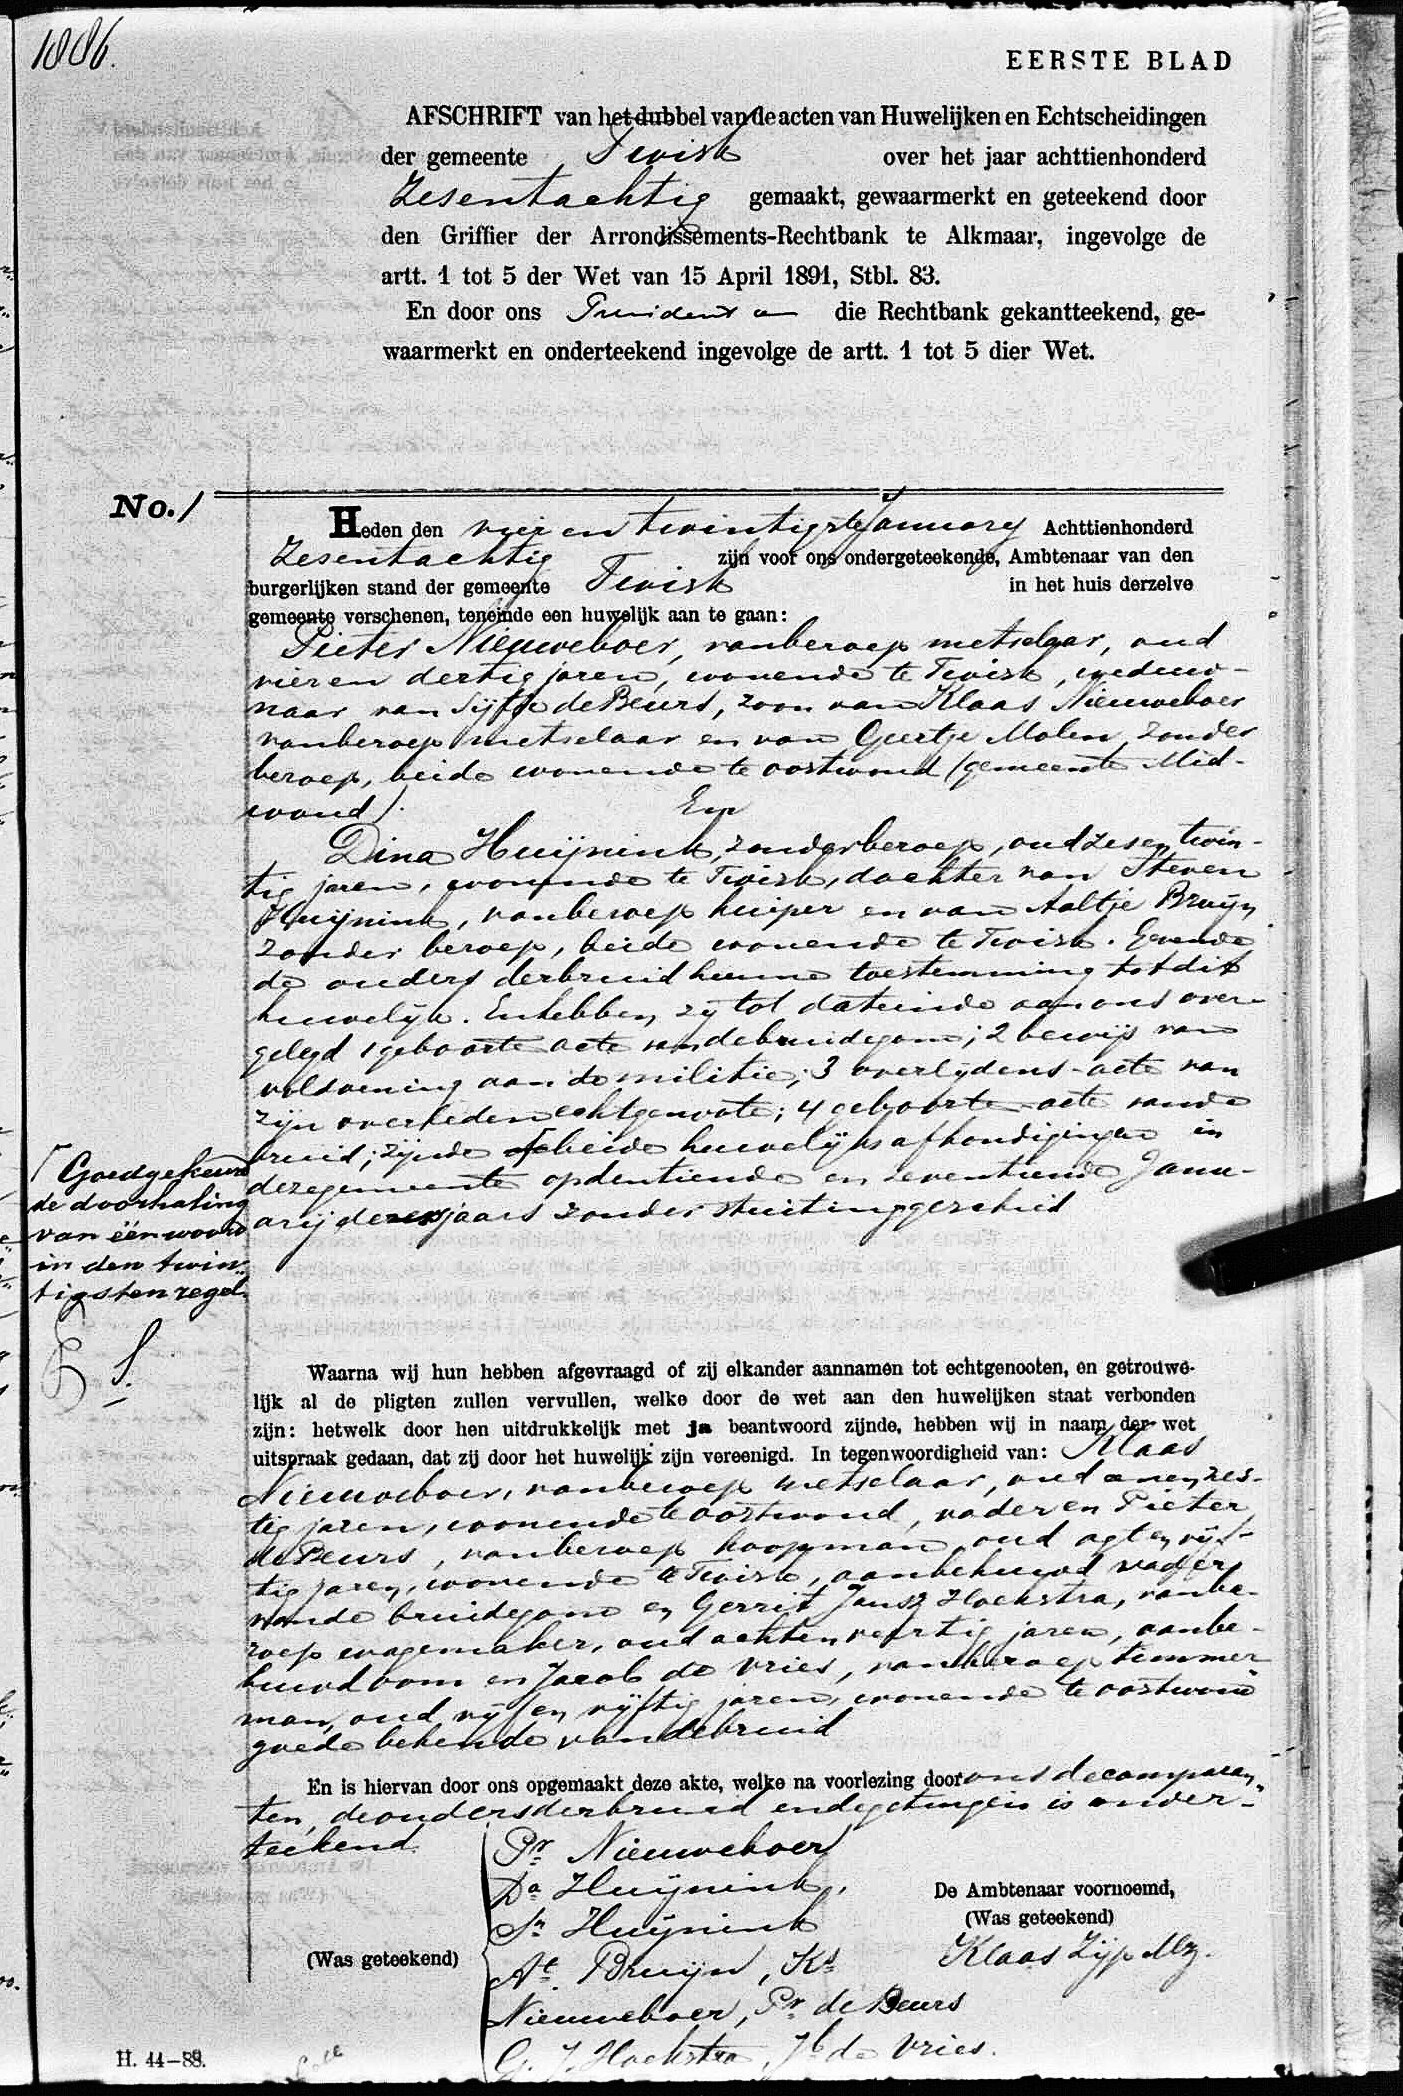 1886.
EERSTE BLAD
AFSCHRIFT van het dubbel van de acten van Huwelijken en Echtscheidingen
der gemeente Twisk over het jaar achttienhonderd
Zesentachtig gemaakt, gewaarmerkt en geteekend door
den Griffier der Arrondissements-Rechtbank te Alkmaar, ingevolge de
artt. 1 tot 5 der Wet van 15 April 1891, Stbl. 83.
En door ons President van die Rechtbank gekantteekend, ge-
waarmerkt en onderteekend ingevolge de artt. 1 tot 5 dier Wet.
No. 1
Heden den vier en twintigste January Achttienhonderd
Zesentachtig zijn voor ons ondergeteekende, Ambtenaar van den
burgerlijken stand der gemeente Twisk in het huis derzelve
gemeente verschenen, teneinde een huwelijk aan te gaan:
Pieter Nieuweboer, vanberoep metselaar, oud
vieren dertig jaren, wonende te Twisk, weduw-
naar van Sijtje de Beurs, zoon van Klaas Nieuweboer
vanberoep metselaar en van Geertje Molen zonder
beroep, beide wonende te oostwoud (gemeente Mid-
woud). En
Dina Huijnink, zonder beroep, oud zesen twin-
tig jaren, wonende te Twisk, dochter van Steven
Huijnink, vanberoep kuiper en van Aaltje Bruijn
zonder beroep, beide wonende te Twisk. Gevende
de ouders der bruid hunne toestemming tot dit
huwelijk. En hebben zij tot dateinde aan ons over-
gelegd 1 geboorte acte van de bruidegom; 2 bewijs van
voldoening aan de militie; 3 overlijdens-acte van
zijn overleden echtgenoote; 4 geboorte acte van de
bruid; zijnde beide huwelijks afkondigingen in
deze gemeente op den tiende en zeventiende Janu-
arij dezes jaars zonder stuiting geschied
Goedgekeurd
de doorhaling
van één woord
in den twin-
tigsten regel.
Waarna wij hun hebben afgevraagd of zij elkander aannamen tot echtgenooten, en getrouwe-
lijk al de pligten zullen vervullen, welke door de wet aan den huwelijken staat verbonden
zijn: hetwelk door hen uitdrukkelijk met ja beantwoord zijnde, hebben wij in naam der wet
uitspraak gedaan, dat zij door het huwelijk zijn vereenigd. In tegenwoordigheid van: Klaas
Nieuweboer, vanberoep metselaar, oud eneenzes-
tig jaren, wonende te oostwoud, vader en Pieter
de Beurs, vanberoep koopman oud agt en vijf-
tig jaren, wonende te Twisk, aanbehuwd vader
van de bruidegom en Gerrit Jansz Hoekstra, vanbe-
roep wagemaker, oud achten veertig jaren, aanbe-
huwd oom en Jacob de Vries, vanberoep timmer
man, oud vijf en vijftig jaren, wonende te oostwoud
goede bekende van de bruid
En is hiervan door ons opgemaakt deze akte, welke na voorlezing door ons de comparan-
ten, de ouders der bruid en de getuigen is onder-
teekend.
(Was geteekend)
Pr. Nieuweboer
Da. Huijnink,
Sn. Huijnink
At. Bruijn, Ks
Nieuweboer, Pr. de Beurs
G. J. Hoekstra, Jb. de Vries.
De Ambtenaar voornoemd,
(Was geteekend)
Klaas Zijp Mz.
H. 44–88.